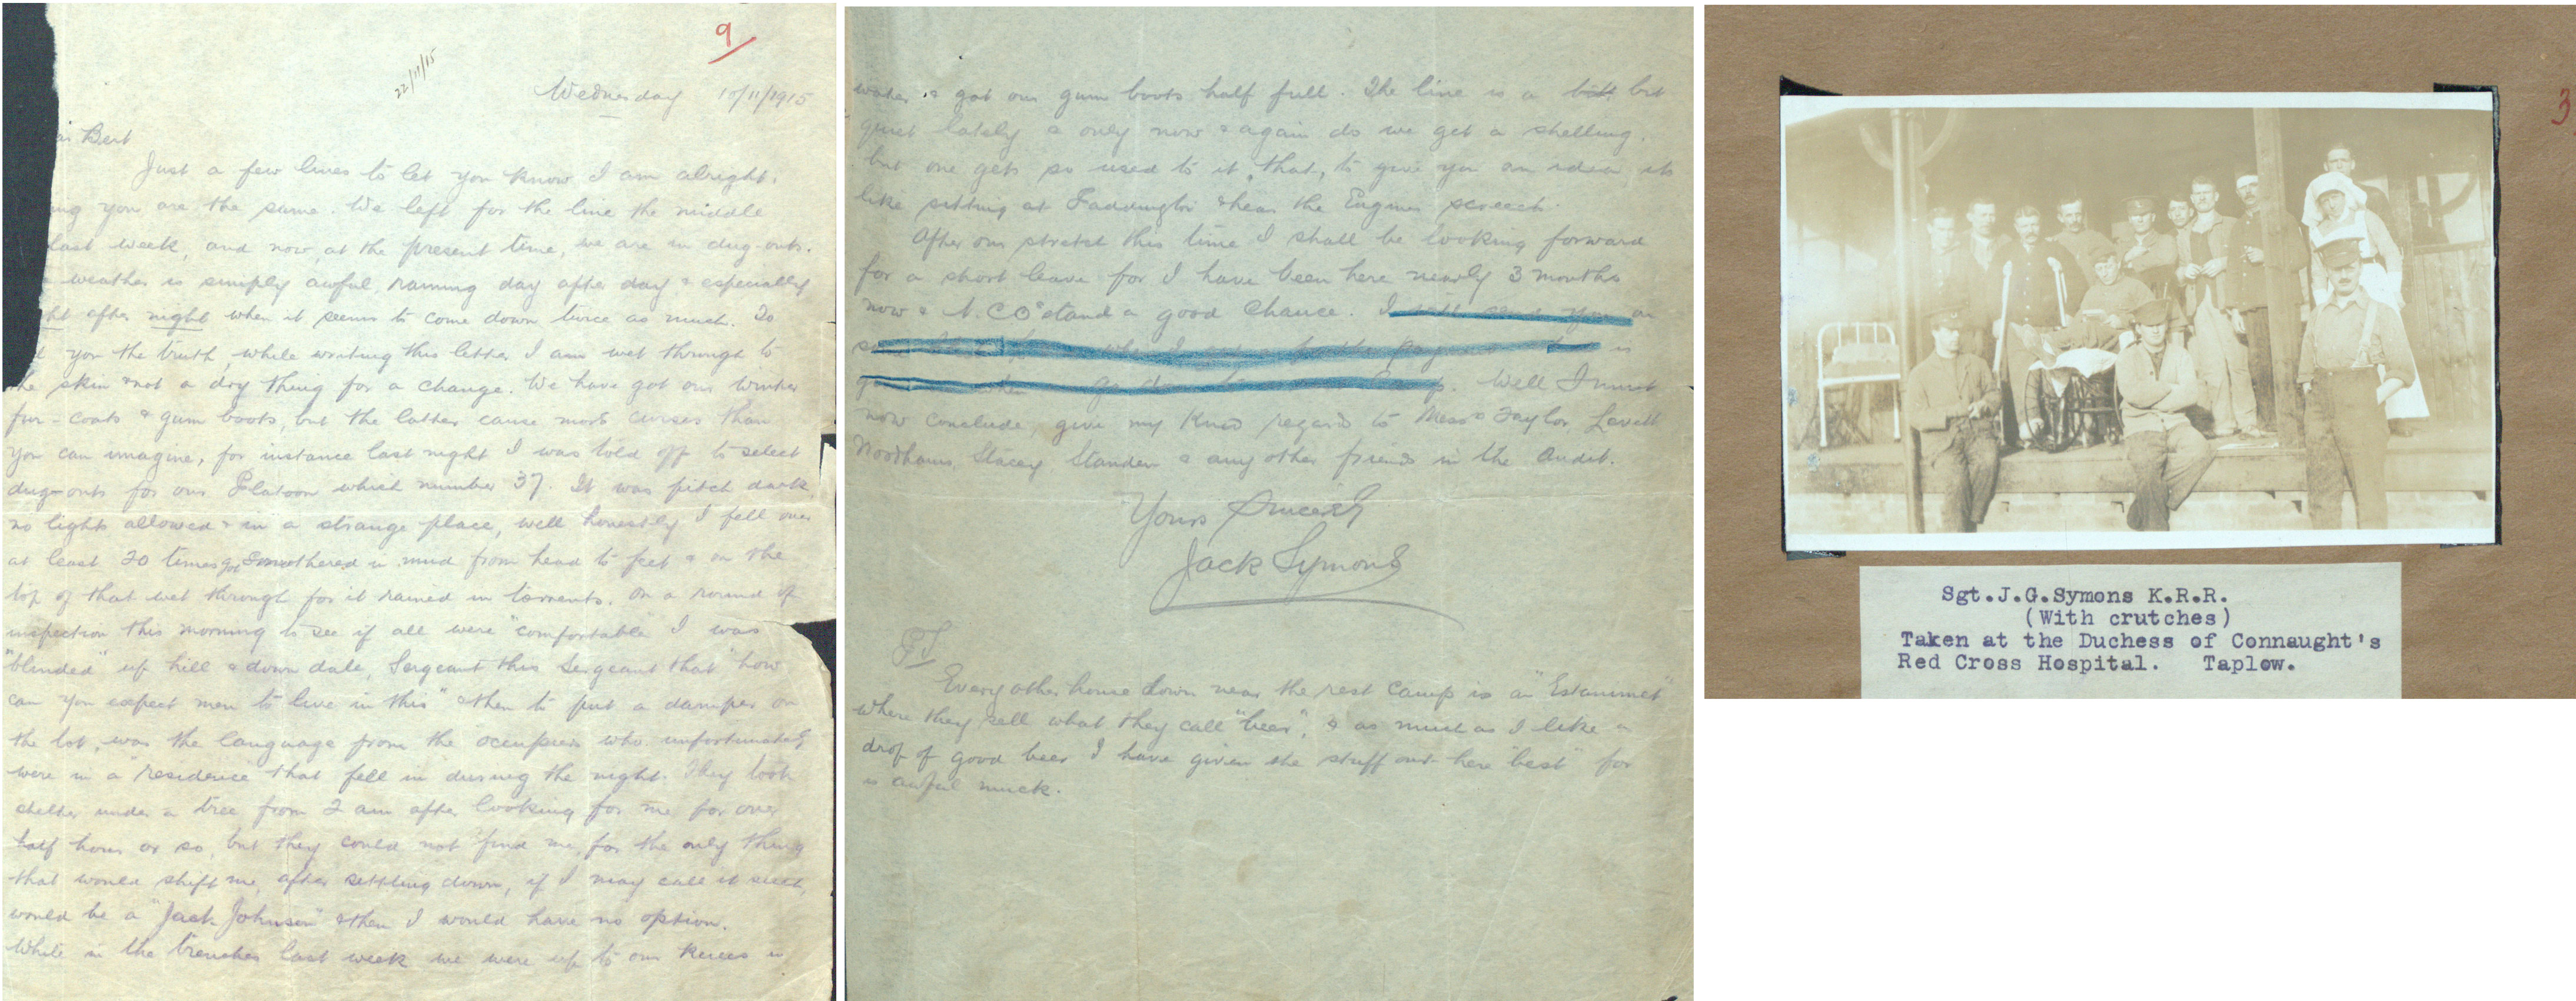 9
22/11/15
Wednesday 10/11/1915
Bert
Just a few lines to let you know I am alright.
ing you are the same. We left for the line the middle
last week, and now, at the present time, we are in dug-outs.
weather is simply awful, raining day after day & especially
ht after night when it seems to come down twice as much. To
you the truth, while writing this letter I am wet through to
he skin & not a dry thing for a change. We have got our winter
fur-coats & gum boots, but the latter cause more curses than
you can imagine, for instance last night I was told off to select
dug-outs for our Platoon which number 37. It was pitch dark
no lights allowed & in a strange place, well honestly I fell over
at least 20 times got smothered in mud from head to feet & on the
top of that wet through for it rained in torrents. On a round of
inspection this morning to see if all were "comfortable" I was
"blinded" up hill & down dale, Sergeant this Sergeant that "how
can you expect men to live in this" & then to put a damper on
the lot, was the language from the occupiers who unfortunately
were in a "residence" that fell in during the night. They took
shelter under a tree from 2 am after looking for me for over
half hour or so, but they could not find me, for the only thing
that would shift me, after settling down, if I may call it such,
would be a "Jack Johnson" & then I would have no option.
While in the trenches last week we were up to our knees in
water & got our gum boots half full. The line is a bit but
quiet lately & only now & again do we get a shelling.
but one gets so used to it, that, to give you an idea its
like sitting at Paddington & hear the Engines screech.
After our stretch this time I shall be looking forward
for a short leave for I have been here nearly 3 months
now & N.COs stand a good chance. I will send you an
when I
is
when go Camp. Well I must
now conclude, give my kind regards to Messrs Taylor, Lovett
Woodhams, Stacey, Standen & any other friends in the Audit.
Yours Sincerely
Jack Symons
PS
Every other house down near the rest camp is an "Estaminet"
where they sell what they call "beer", & as much as I like a
drop of good beer I have given the stuff out here "best" for
is awful muck.
3
Sgt.J.G.Symons K.R.R.
(With crutches)
Taken at the Duchess of Connaught's
Red Cross Hospital. Taplow.